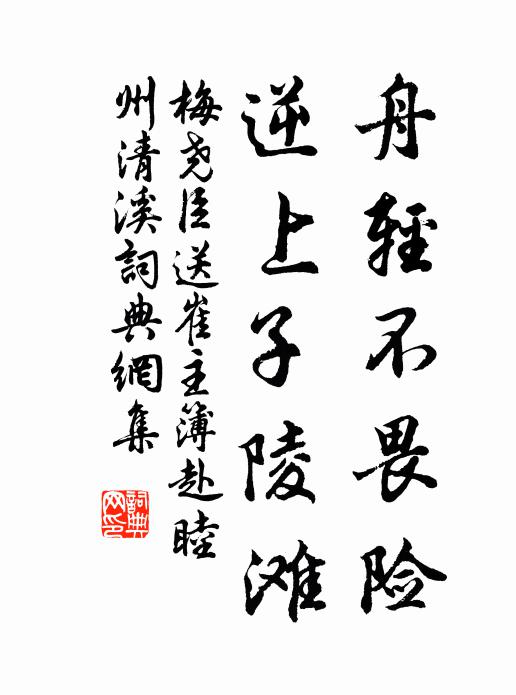 舟輕不畏险
逆上子陵滩
梅尧臣送崔主簿赴睦
州清溪詞典網集
詞典
网印